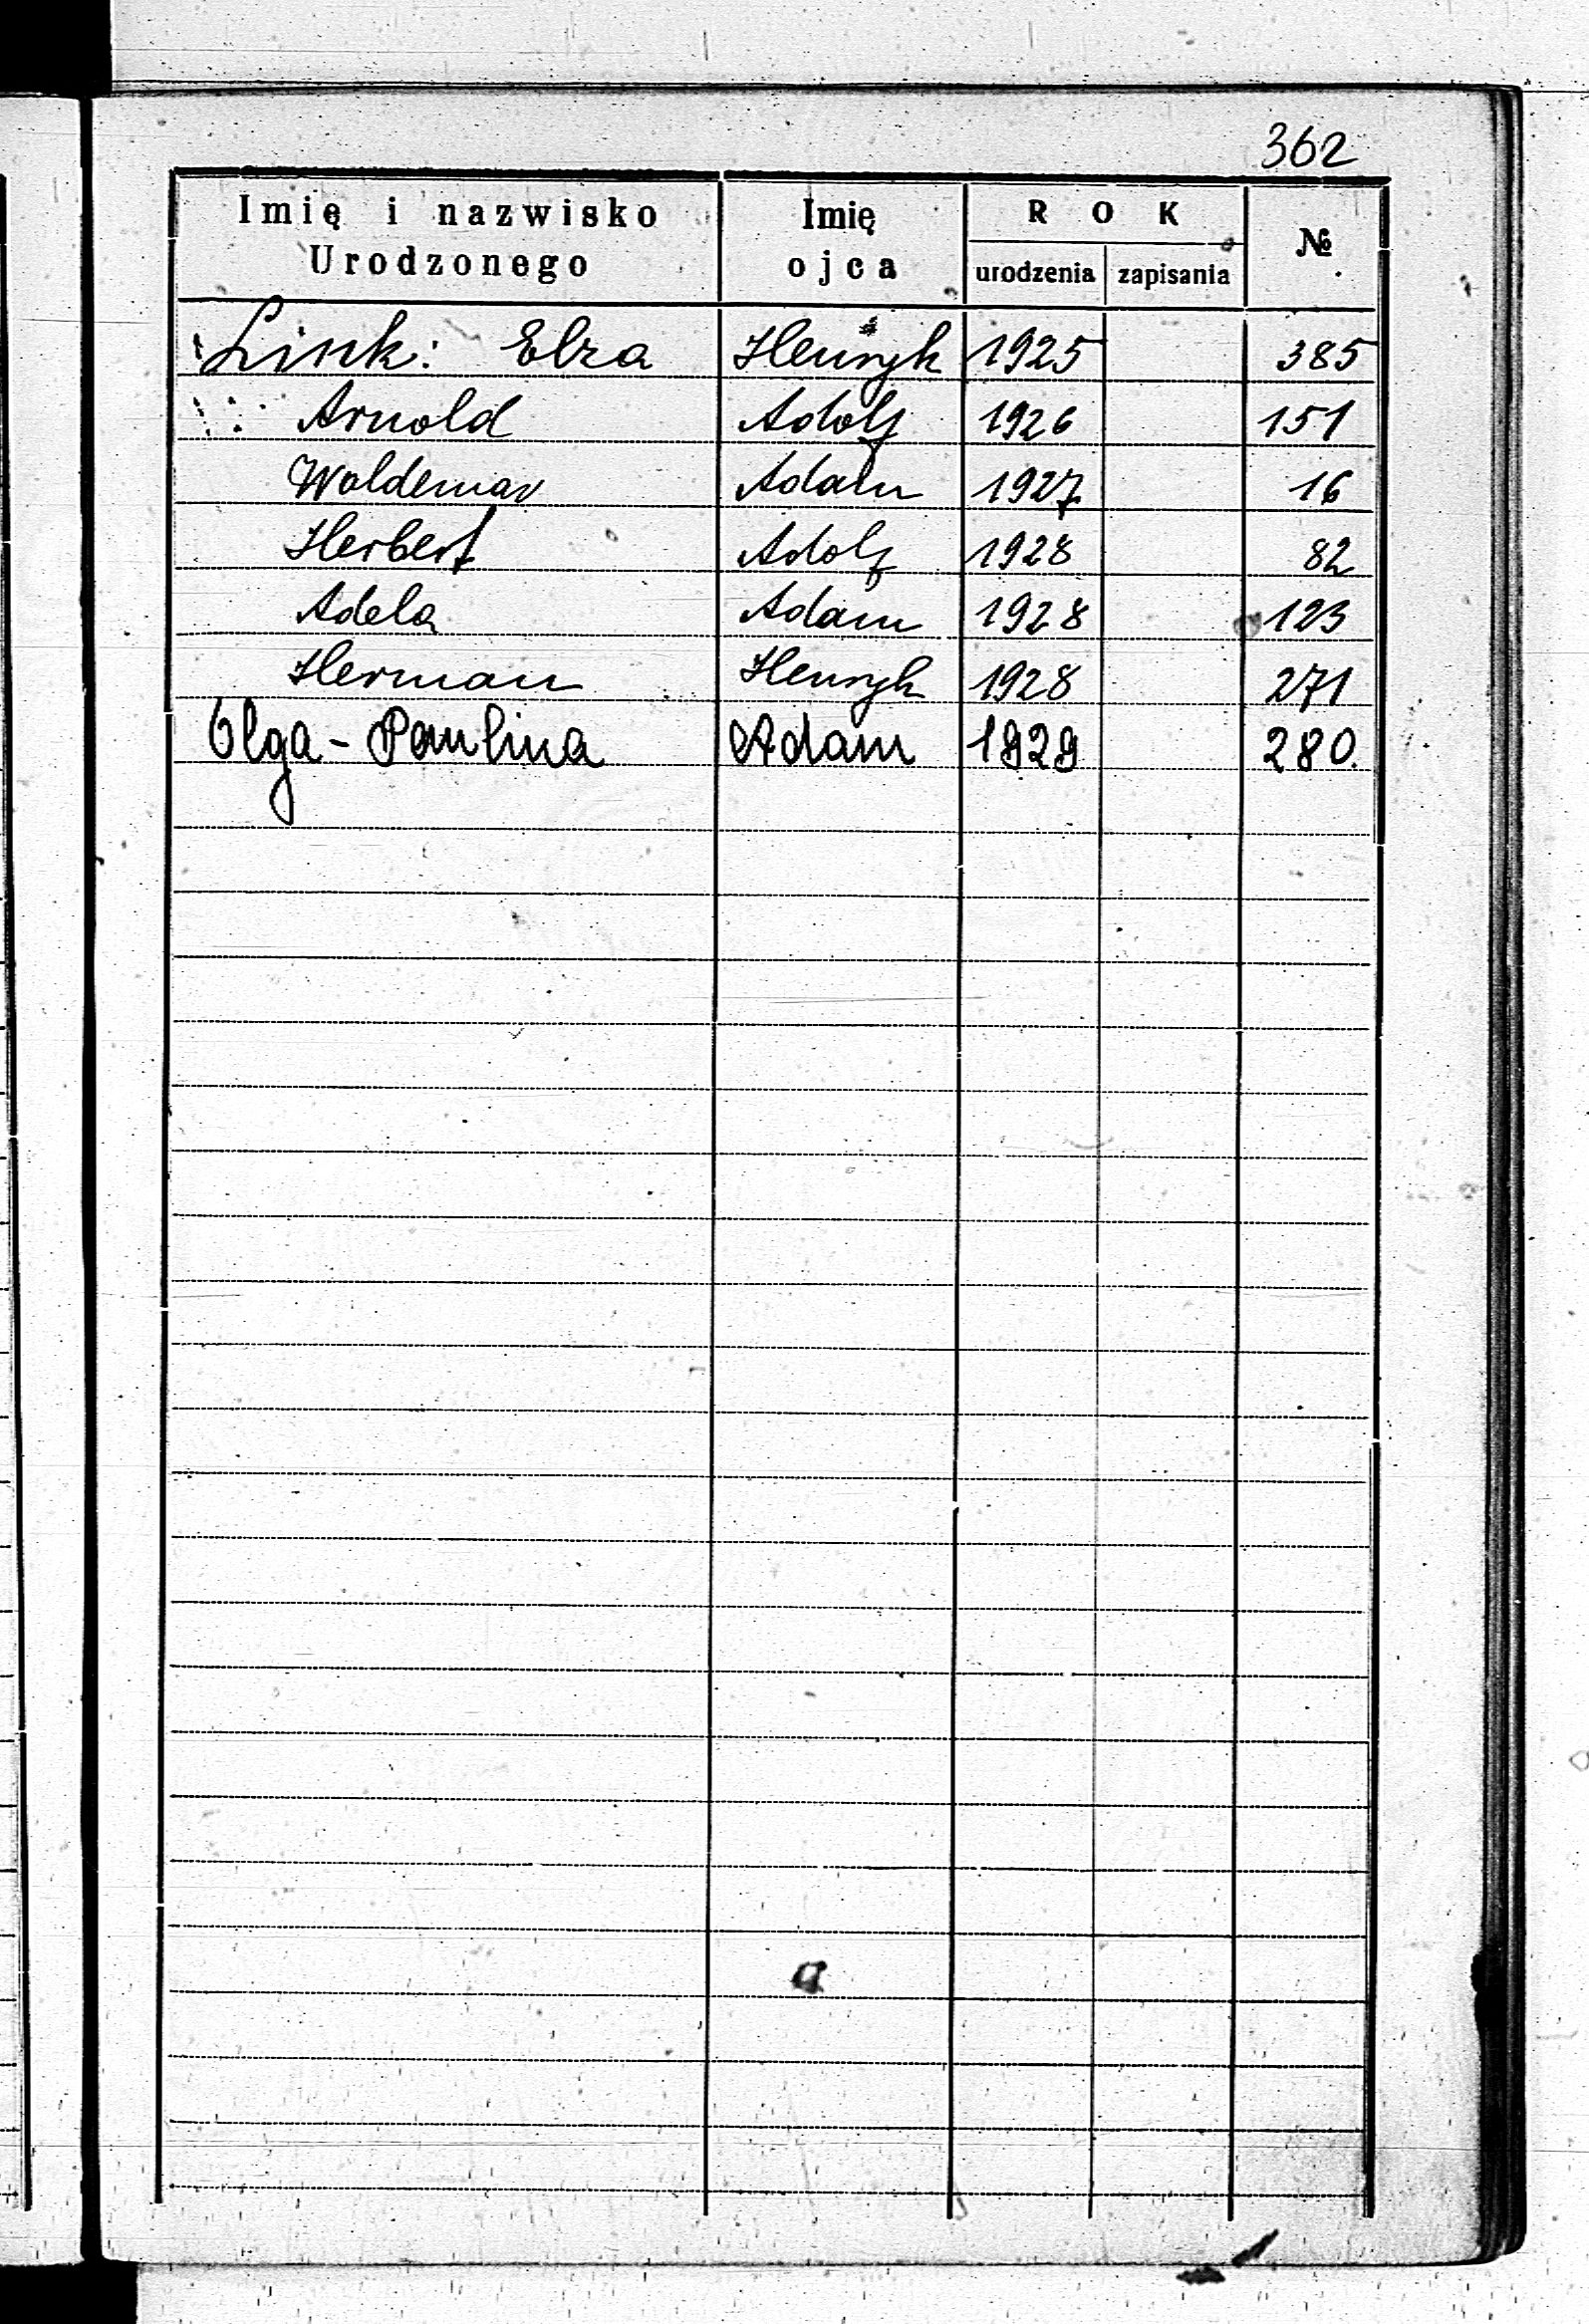 362
Imię i nazwisko Urodzonego Imię ojca ROK urodzenia zapisania №
Link: Elza Henryk 1925 385
Arnold Adolf 1926 151
Woldemar Adam 1927 16
Herbert Adolf 1928 82
Adela Adam 1928 123
Herman Henryk 1928 271
Olga - Paulina Adam 1929 280.
a